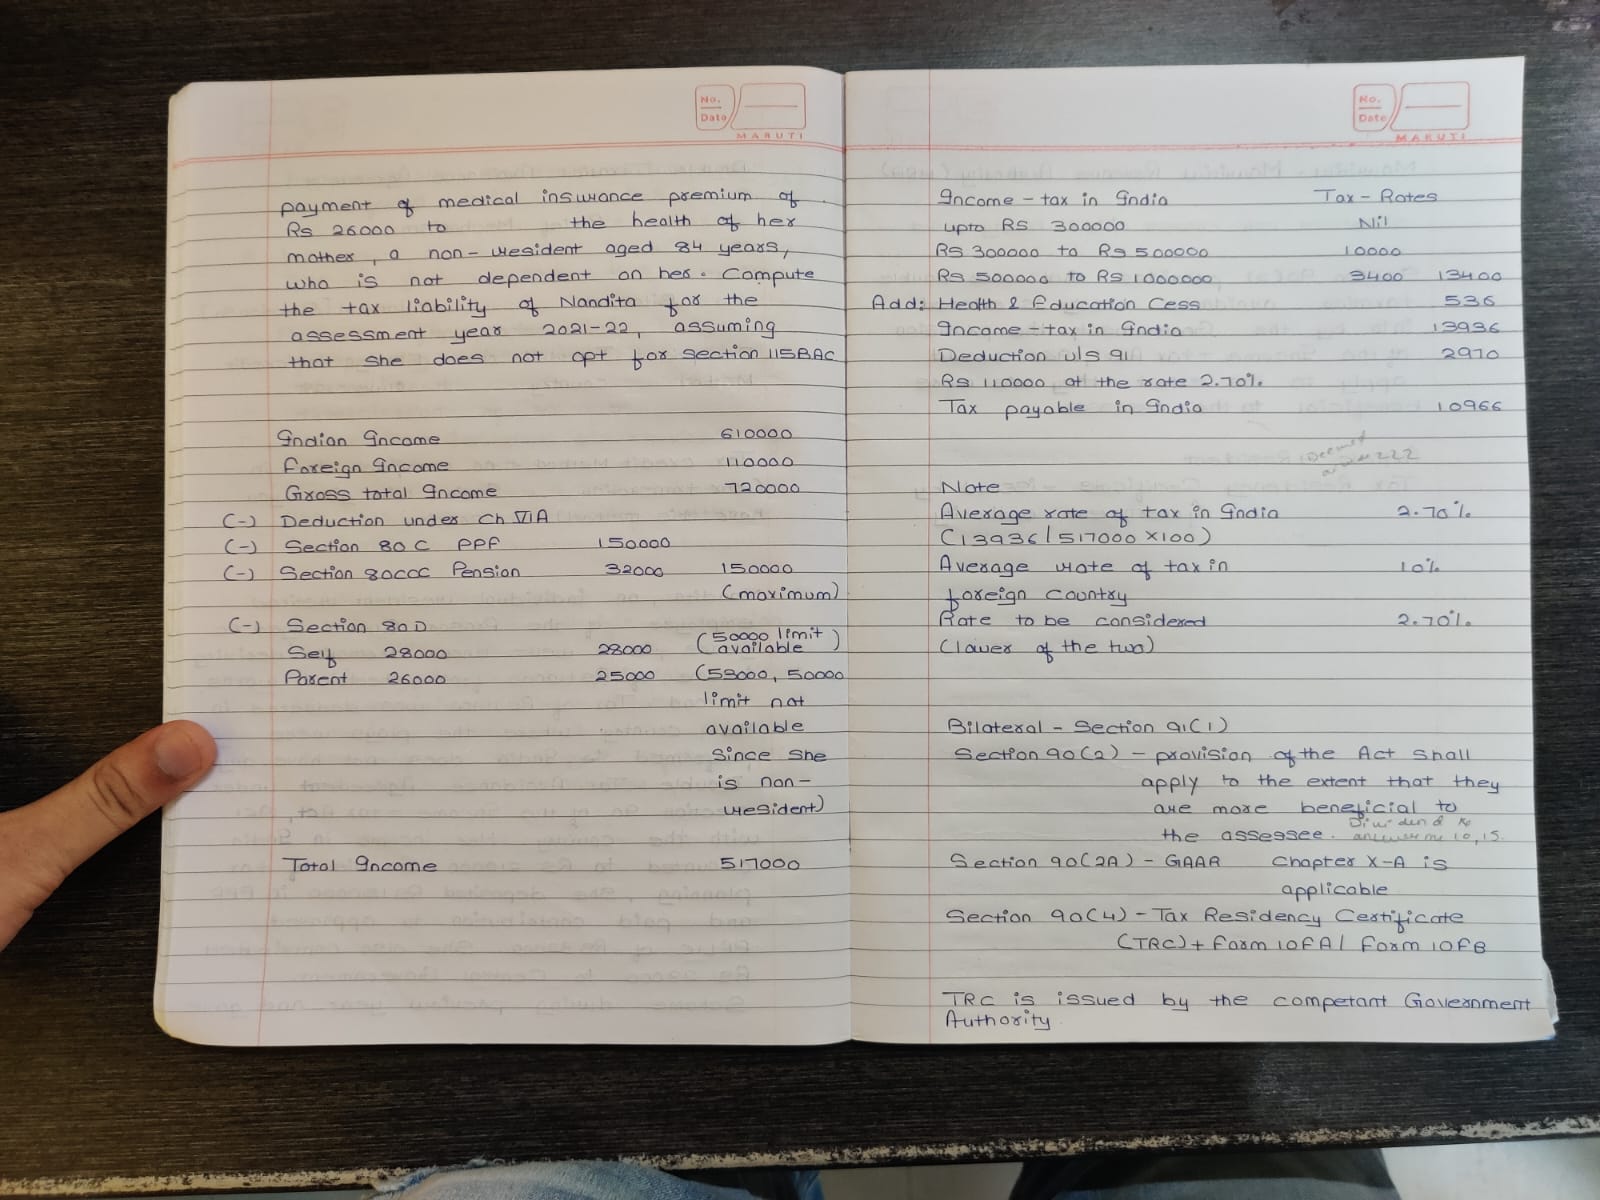 No.
Date
MARUTI
payment of medical insurance premium of
Rs 26000 to the health of her
mother, a non-resident aged 84 years,
who is not dependent on her. Compute
the tax liability of Nandita for the
assessment year 2021-22, assuming
that she does not opt for section 115BAC
Indian Income 610000
Foreign Income 110000
Gross total Income 720000
(-) Deduction under Ch VIA
(-) Section 80C PPF 150000
(-) Section 80CCC Pension 32000 150000
(maximum)
(-) Section 80D
Self 28000 28000 (50000 limit available)
Parent 26000 25000 (53000, 50000
limit not
available
since she
is non-
resident)
Total Income 517000
No.
Date
MARUTI
Income-tax in India Tax-Rates
upto RS 300000 Nil
Rs 300000 to Rs 500000 10000
Rs 500000 to Rs 1000000 3400 13400
Add: Health & Education Cess 536
Income-tax in India 13936
Deduction u/s 91 2970
Rs 110000 at the rate 2.70%.
Tax payable in India 10966
Note
Average rate of tax in India 2.70%
(13936/517000 x100)
Average rate of tax in 10%
foreign country
Rate to be considered 2.70%
(lower of the two)
Bilateral - Section 91(1)
Section 90(2) - provision of the Act shall
apply to the extent that they
are more beneficial to
the assessee.
Section 90(2A) - GAAR Chapter X-A is
applicable
Section 90(4) - Tax Residency Certificate
(TRC) + Form 10FA/ Form 10FB
TRC is issued by the competant Government
Authority